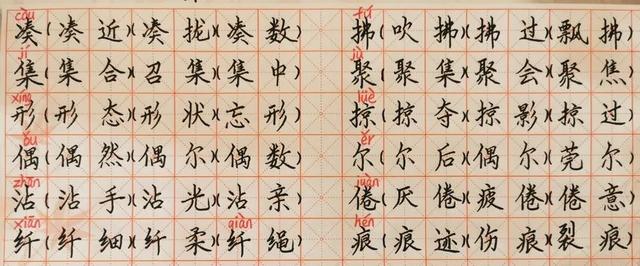 còu fú
凑(凑近)(凑拢)(凑数) 拂(吹拂)(拂过)(飘拂)
jí jù
集(集合)(召集)(集中) 聚(聚集)(聚会)(聚焦)
xíng lüè
形(形态)(形状)(忘形) 掠(掠夺)(掠影)(掠过)
ǒu ěr
偶(偶然)(偶尔)(偶数) 尔(尔后)(偶尔)(莞尔)
zhān juàn
沾(沾手)(沾光)(沾亲) 倦(厌倦)(疲倦)(倦意)
xiān qiàn hén
纤(纤细)(纤柔)(纤绳) 痕(痕迹)(伤痕)(裂痕)